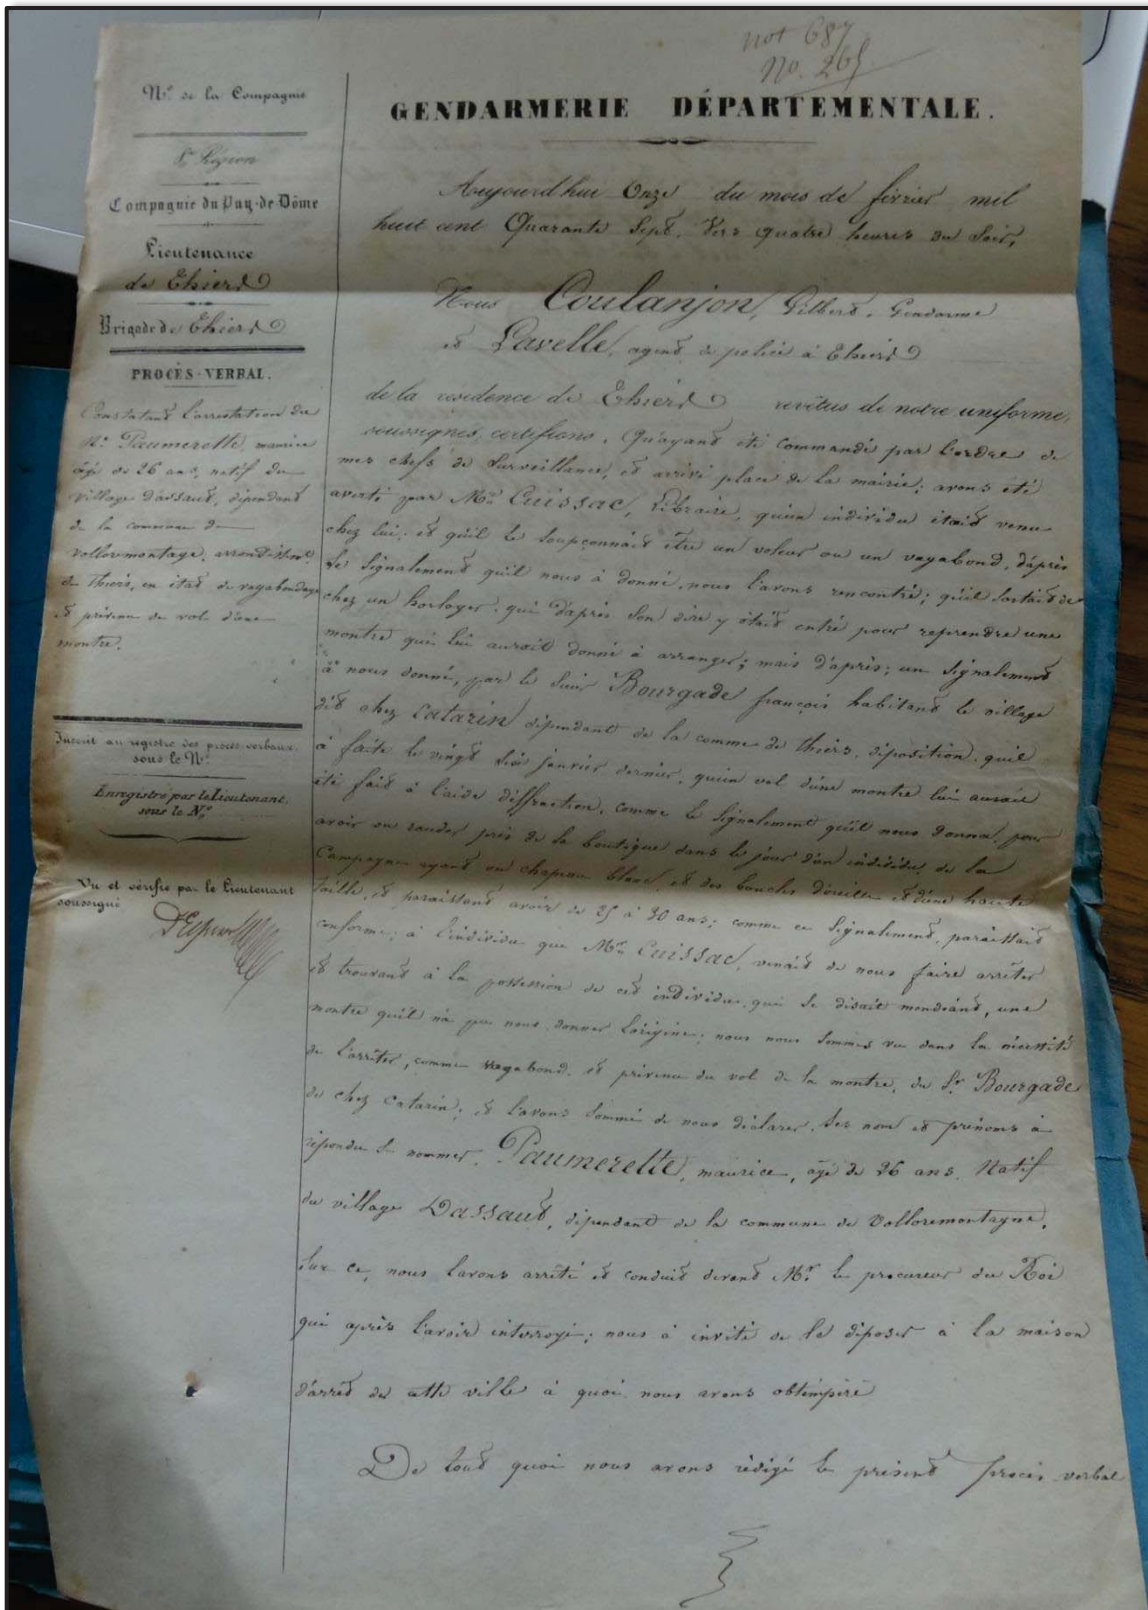 not 687
No. 265
GENDARMERIE DÉPARTEMENTALE.
N.º de la Compagnie
Légion
Compagnie du Puy-de-Dôme
Lieutenance
de Thiers
Brigade de Thiers
PROCÈS-VERBAL.
Constatant l'arrestation du
N.é Paumerette, maurice
âgé de 26 ans, natif du
village dassaut, dépendant
de la commune de
volloremontagne, arrondissem.t
de Thiers, en état de vagabondage
et prévenu de vol d'une
montre.
Inscrit au registre des procès-verbaux,
sous le N.º
Enregistré par le Lieutenant,
sous le N.º
Vu et vérifié par le Lieutenant
soussigné
Aujourd'hui Onze du mois de février mil
huit cent Quarante Sept, Vers quatre heures du Soir,
Nous Coulanjon, Gilbert, Gendarme
et Lavelle, agent de police à Thiers
de la residence de Thiers revêtus de notre uniforme,
soussignés, certifions, Qu'ayant été commandé par l'ordre de
mes chefs de Surveillance, et arrivé place de la mairie; avons été
averti par M.r Cuissac, Libraire, qu'un individu étais venu
chez lui; et qu'il le soupçonnait être un voleur ou un vagabond, d'après
le Signalement qu'il nous à donné, nous l'avons rencontré; qu'il Sortait de
chez un horloger, qui d'après Son dire y étais entré pour reprendre une
montre qui lui auroit donné à arranger; mais d'après; un Signalement
à nous donné, par le Suir Bourgade françois habitant le village
dit chez Catarin dépendant de la comme de thiers, déposition, qu'il
à faite le vingt Six janvier dernier, qu'un vol d'une montre lui aurait
été fait à l'aide d'iffraction, comme le Signalement qu'il nous donna, pour
avoir vu rauder près de la boutique dans le jour d'un individu de la
Campagne ayant un chapeau blanc, et des boucles d'oreilles et d'une haute
taille, et paraissant avoir de 25 à 30 ans; comme ce Signalement, paraissait
conforme; à l'individu que M.r Cuissac, venait de nous faire arrêter
et trouvant à la possession de cet individu, qui se disait mendiant, une
montre qu'il n'a pu nous donner l'origine; nous nous Sommes vu dans la nécessité
de l'arrêter, comme vagabond, et prévenu du vol de la montre, du S.r Bourgade
de chez Catarin; et l'avons Sommé de nous déclarer, Ses nom et prénoms à
répondu Se nommer, Paumerette, maurice, âgé de 26 ans. Natif
du village Dassaut, dépendant de la commune de Volloremontagne,
Sur ce, nous l'avons arrêté et conduit devant M.r le procureur du Roi
qui après l'avoir interrogé; nous à invité de le déposer à la maison
d'arrêt de cette ville à quoi nous avons obtempéré
De tout quoi nous avons rédigé le présent procès-verbal